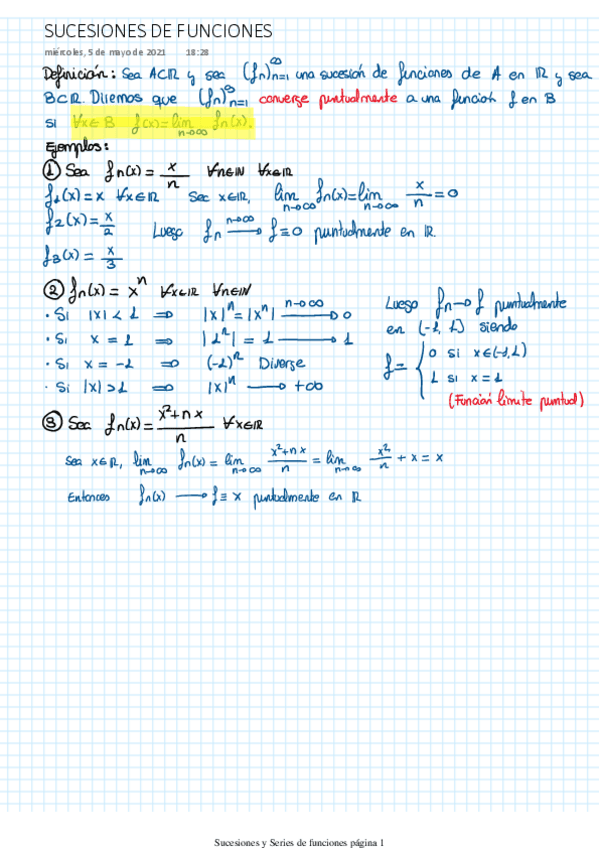 SUCESIONES DE FUNCIONES
miércoles, 5 de mayo de 2021 18:28
Definición: Sea A⊂ℝ y sea (fn)∞n=1 una sucesión de funciones de A en ℝ y sea
B⊂ℝ. Diremos que (fn)∞n=1 converge puntualmente a una función f en B
si ∀x∈B f(x)=lim n→∞ fn(x).
Ejemplos:
① Sea fn(x)= x/n ∀n∈ℕ ∀x∈ℝ
f1(x)=x ∀x∈ℝ Sea x∈ℝ, lim n→∞ fn(x)=lim n→∞ x/n =0
f2(x)= x/2 Luego fn n→∞⟶ f≡0 puntualmente en ℝ.
f3(x)= x/3
② fn(x)= x^n ∀x∈ℝ ∀n∈ℕ
· Si |x|<1 ⇒ |x|^n=|x^n| n→∞⟶ 0
· Si x=1 ⇒ |1^n|=1 ⟶ 1
· Si x=-1 ⇒ (-1)^n Diverge
· Si |x|>1 ⇒ |x|^n ⟶ +∞
Luego fn→f puntualmente
en (-1,1] siendo
f= { 0 si x∈(-1,1)
1 si x=1
(Función límite puntual)
③ Sea fn(x)= x²+nx/n ∀x∈ℝ
Sea x∈ℝ, lim n→∞ fn(x)= lim n→∞ x²+nx/n = lim n→∞ x²/n + x = x
Entonces fn(x) ⟶ f≡x puntualmente en ℝ
Sucesiones y Series de funciones página 1